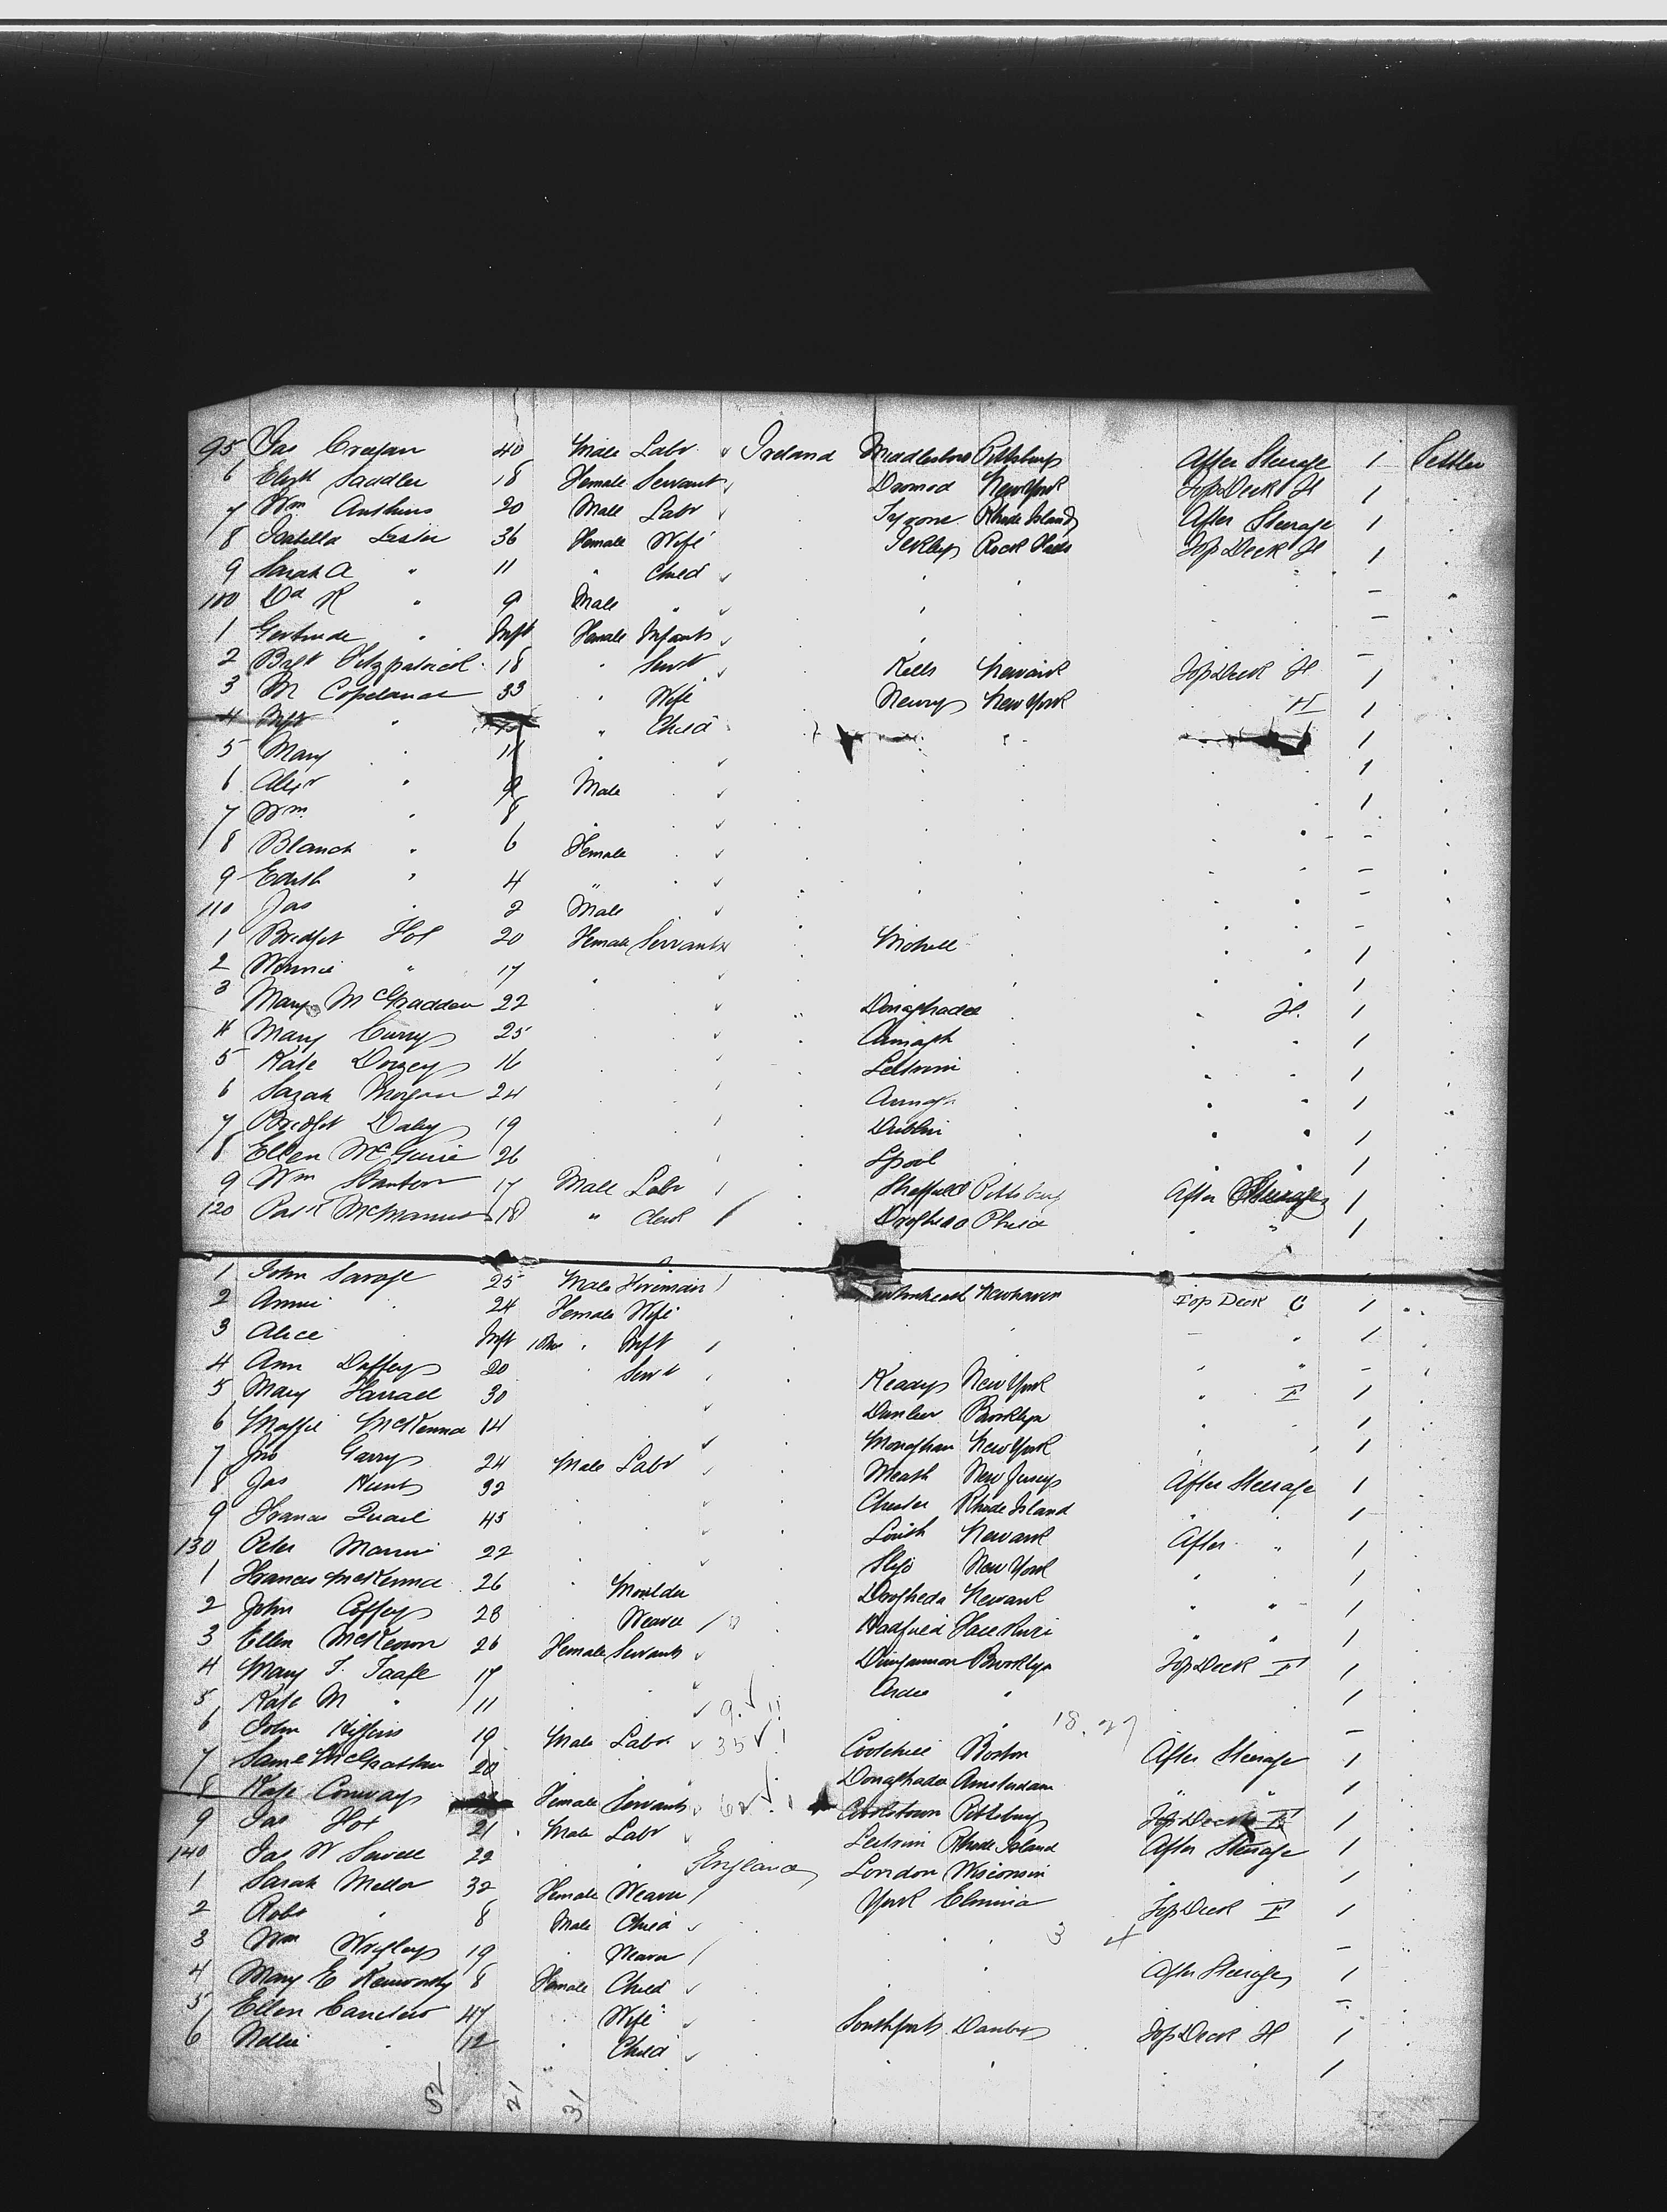 95 Jas Cragan 40 Male Labr Ireland Middlesboro Pittsburg After Steerage 1 Settler
6 Elizth Saddler 18 Female Servant Dromod New York Top Deck H 1
7 Wm Anthers 20 Male Labr Tyrone Rhode Island After Steerage 1
8 Isabella Laster 36 Female Wife Rock Top Deck H 1
9 Sarah A " 11 " Child
100 Dd R " 9 Male "
1 Gertrude " Inft Female Infant
2 Bgt Fitzpatrick 18 " Servt Kells Newark Top Deck H 1
3 M Copeland 33 " Wife Newry New York H 1
4 " " Child 1
5 Mary 11 1
6 Alexr " 9 Male 1
7 Wm 8
8 Blanch " 6 Female
9 Edith " 4 "
110 Jas 2 Male
1 Bridget 20 Female Servant 1
2 Winnie " 17 1
3 Mary McFadden 22 Donaghadee H 1
4 Mary Curry 25 Armagh 1
5 Kate Dorrey 16 Leitrim 1
6 Sarah Morgan 24 Armagh 1
7 Bridget Daley 19 Dublin 1
8 Ellen McGuire 26 Lpool 1
9 Wm Stanton 17 Male Labr Sheffield Pittsburg After Steerage 1
120 Patk McManus 18 " Clerk Drogheda Phila " 1
1 John Savage 25 Male Fireman Newhaven Top Deck C 1
2 Annie 24 Female Wife 1
3 Alice Inft Inft
4 Ann Duffey 20 Servt Keady New York F 1
5 Mary Harrall 30 Brooklyn 1
6 Maggie McKenna 14 Monaghan New York 1
7 Jno Garry 24 Male Labr Meath New Jersey After Steerage 1
8 Jas Hunt 32 Chester Rhode Island 1
9 Francis Quail 45 Louth Newark After " 1
130 Peter Mannii 22 Sligo New York 1
1 Francis McKenna 26 Moulder Drogheda Newark 1
2 John Coffey 28 Weaver Hadfield 1
3 Ellen McKeown 26 Female Servant Dungannon Brooklyn Top Deck F 1
4 Mary T. Taafe 17 Ardee " 1
5 Kate M " 11
6 John Higgins 19 Male Labr Cootehill Boston After Steerage 1
7 Saml McGrattan 20 Donaghadee Amsterdam " " 1
8 Kate Conway Female Servant Cookstown Pittsburg Top Deck F 1
9 Jas 21 Male Labr Leitrim Rhode Island After Steerage 1
140 Jas W Sewell 22 England London Wisconsin 1
1 Sarah Mellor 32 Female Weaver York Elmira Top Deck F 1
2 Robt " 8 Male Child
3 Wm Wrigley 19 Weaver After Steerage 1
4 Mary E Kenworthy 8 Female Child
5 Ellen 47 Wife Southport Danby Top Deck H 1
6 Nellie 12 Child 1
52 21 31